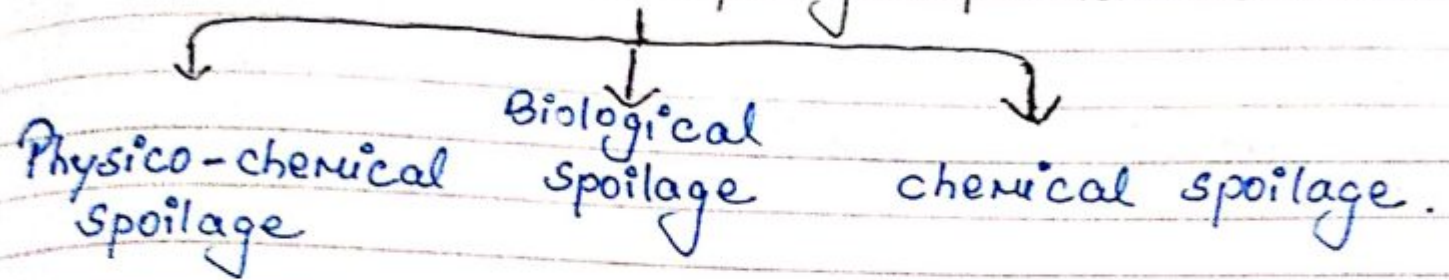 Physico-chemical spoilage
Biological spoilage
chemical spoilage.